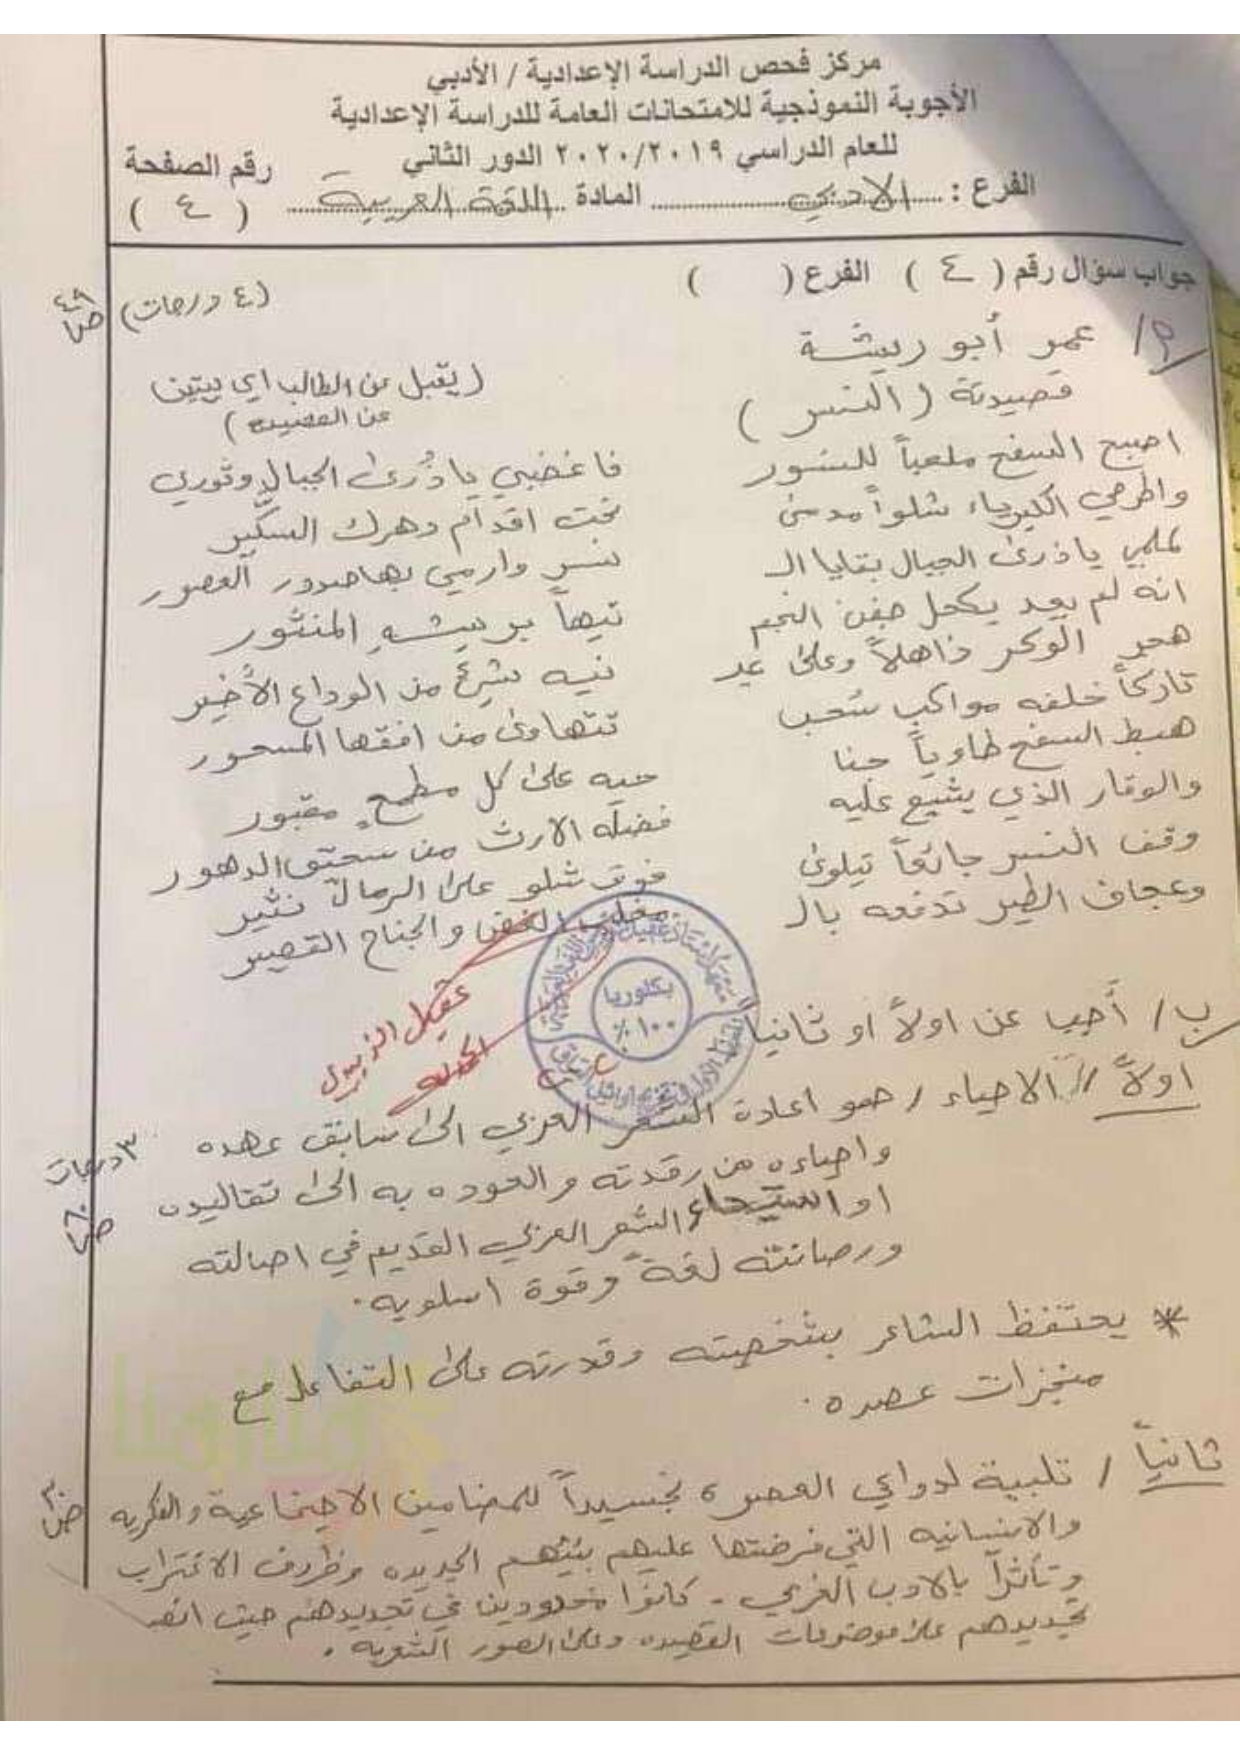 مركز فحص الدراسة الإعدادية / الأدبي
الأجوبة النموذجية للامتحانات العامة للدراسة الإعدادية
للعام الدراسي ٢٠٢٠/٢٠١٩ الدور الثاني
رقم الصفحة
الفرع : الادبي المادة اللغة العربية ( ٤ )
جواب سؤال رقم ( ٤ ) الفرع ( ) (٤ درجات) ص٤٩
٢/ عمر أبو ريشة
قصيدة ( النسر ) ( يقبل من الطالب اي بيتين
من القصيدة )
اصبح السفح ملعباً للنسور فاغضبي يا ذُرى الجبال وثوري
واطرحي الكبرياء شلواً مدمى تحت اقدام دهرك السكّير
لملمي يا ذرى الجبال بقايا الـ نسر وارمي بها صدور العصور
انه لم يعد يكحل جفن النجم تيهاً بريشهِ المنثور
هجر الوكر ذاهلاً وعلى عيـ نيه شيءٌ من الوداع الأخير
تاركاً خلفه مواكب سُحب تتهاوى من افقها المسحور
هبط السفح طاوياً جنا حيه على كل مطمحٍ مقبور
والوقار الذي يشيع عليه فضلة الارث من سحيق الدهور
وقف النسر جائعاً يتلوى فوق شلو على الرمال نثير
وعجاف الطير تدفعه بالـ مخلب الغض والجناح القصير
عقيل الزبيدي
بكلوريا
١٠٠ ٪
ب / أجب عن اولاً او ثانياً
اولاً // الاحياء / هو اعادة الشعر العربي الى سابق عهده ٣ درجات
واحياءه من رقدته والعوده به الى تقاليده
او استيحاء الشعر العربي القديم في اصالته
ورصانته لغةً وقوة اسلوبه .
* يحتفظ الشاعر بشخصيته وقدرته على التفاعل مع
منجزات عصره .
ثانياً / تلبية لدواعي العصر ، تجسيداً للمضامين الاجتماعية والفكريه ص٣٠
والانسانيه التي فرضتها عليهم بيئتهم الجديده وظروف الاغتراب
وتأثراً بالادب الغربي - كانوا محدودين في تجديدهم حيث انصب
تجديدهم على موضوعات القصيده وعلى الصور الشعريه .